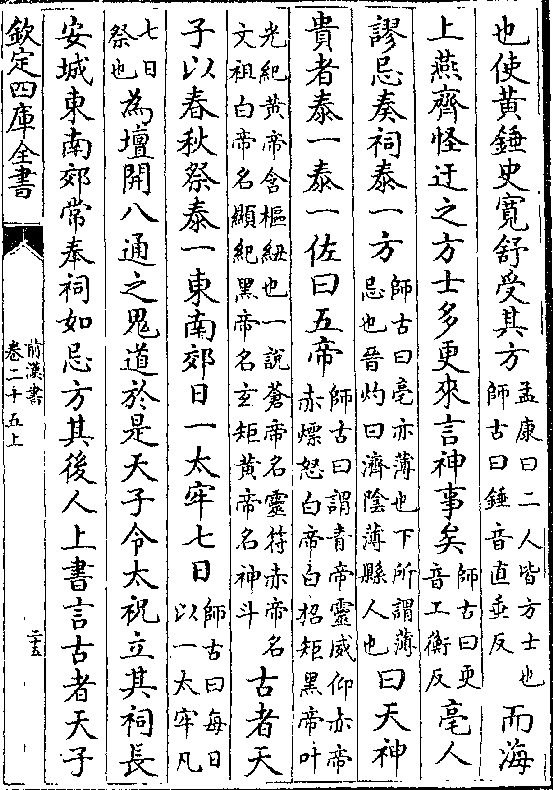 也使黄錘史寛舒受其方孟康曰二人皆方士也師古曰錘音直垂反而海
上燕齊怪迂之方士多更來言神事矣師古曰更音工衡反亳人
謬忌奏祠泰一方師古曰亳亦薄也下所謂薄忌也晉灼曰濟陰薄縣人也曰天神
貴者泰一泰一佐曰五帝師古曰謂青帝靈威仰赤帝赤熛怒白帝白招矩黒帝叶
光紀黄帝含樞紐也一說蒼帝名靈符赤帝名文祖白帝名顯紀黒帝名玄矩黄帝名神斗古者天
子以春秋祭泰一東南郊日一太牢七日師古曰每日以一太牢凡
七日祭也為壇開八通之鬼道於是天子令太祝立其祠長
安城東南郊常奉祠如忌方其後人上書言古者天子
欽定四庫全書
前漢書
卷二十五上
二十五